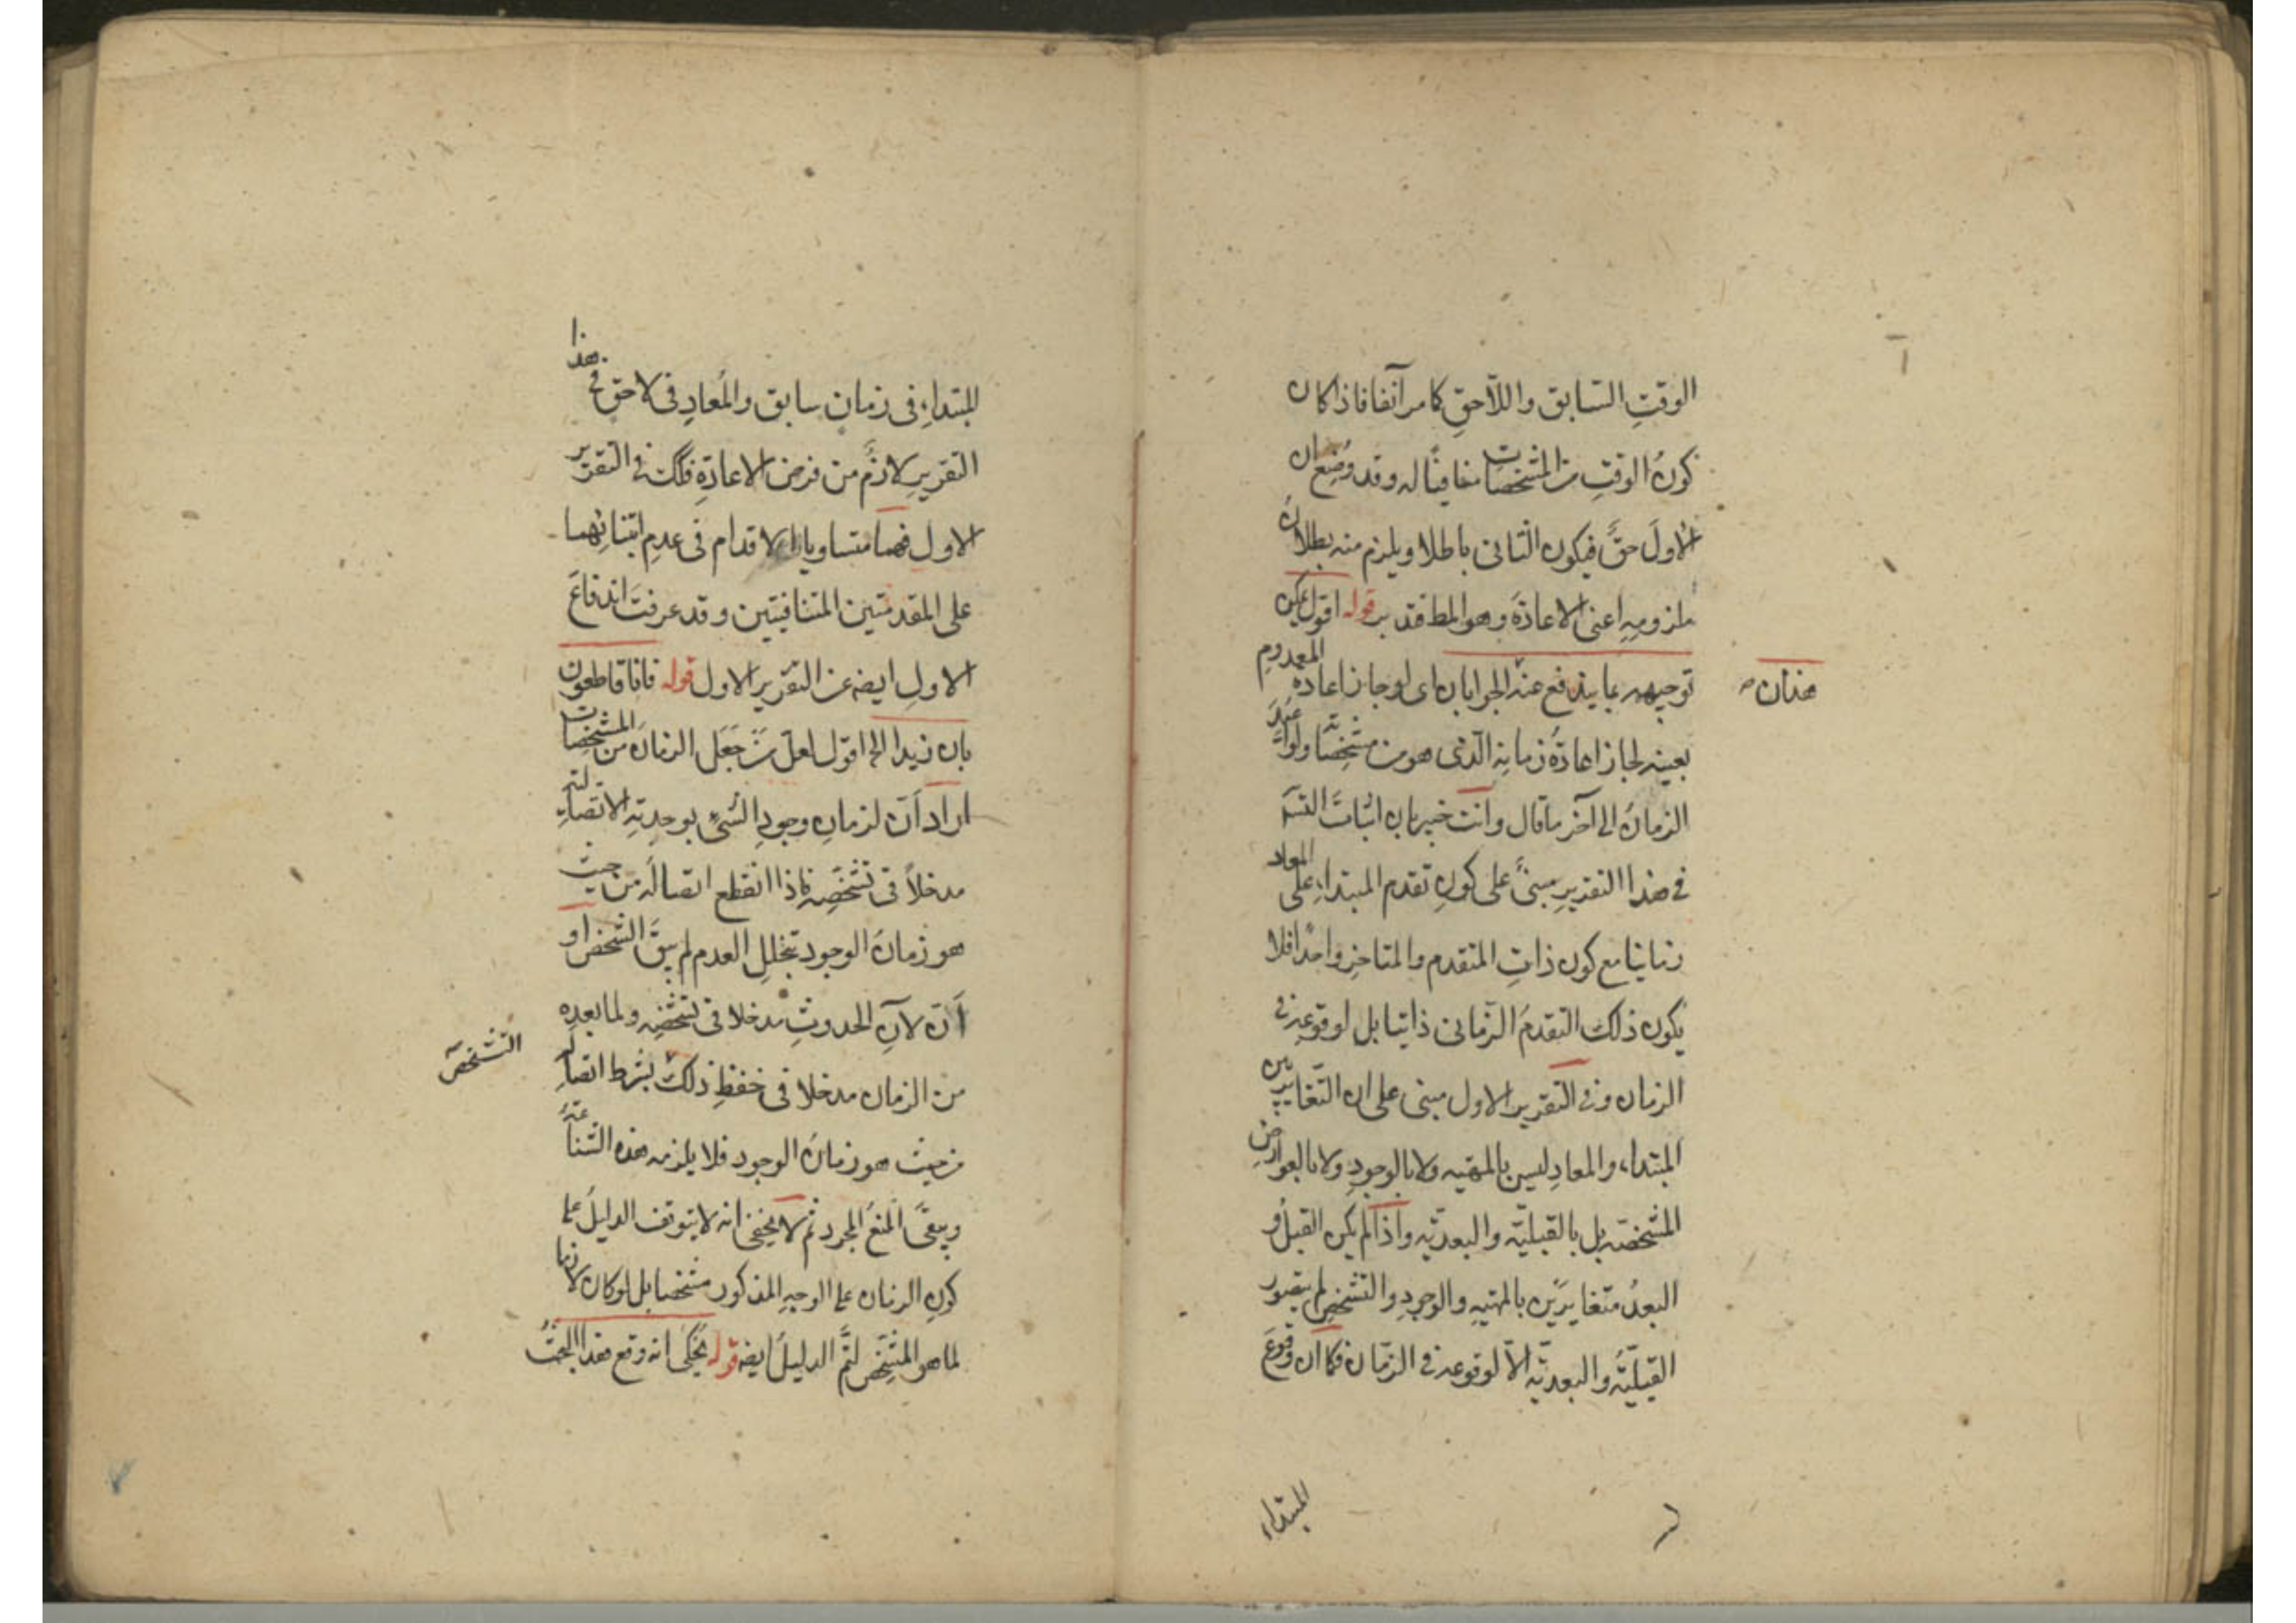 الوقتِ السّابق واللّاحقِ كما مر آنفا فاذا كان
كونُ الوقتِ من المشخصات منافيًا له وقد وُضِع ان
الاولَ حقٌّ فيكون الثانى باطلا ويلزم منه بطلانُ
ملزومِهِ اعنى الاعادةَ وهو المط فتدبر قوله اقول يمكن
توجيهه بما يندفع عنه الجوابان اى لو جاز اعادة المعدومِ
هذان
بعينه لجاز اعادةُ زمانِه الّذى هو من مشخصاته ولو اُعيد
الزمانُ الى آخر ما قال وانت خبير بان اثباتَ التسَم
فى هذا التقديرِ مبنىٌّ على كونِ تقدم المبتداءِ على المعاد
زمانيا مع كون ذاتِ المتقدم والمتاخر واحدًا فلا
يكون ذلك التقدمُ الزّمانى ذاتيا بل لوقوعه فى
الزمان وفى التقرير الاول مبنى على ان التّغاير بين
المبتداء والمعادِ ليس بالمهيه ولا بالوجودِ ولا بالعوارضِ
المشخصّه بل بالقبليّه والبعديّه واذا لم يكن القبلُ و
البعدُ متغايرَين بالمهيهِ والوجودِ والتشخصِ لم يتصور
القبليّهُ والبعديّه الّا لوقوعه فى الزّمان فكما ان وقوعَ
المبتداء
المبتداءِ فى زمانٍ سابق والمُعادِ فى لاحقٍ فى هذا
التقريرِ لازمٌ من فرض الاعادةِ فكك فى التقرير
الاول فهما متساويا الاقدام فى عدمِ ابتنائهما
على المقدمتين المتنافيتين وقد عرفتَ اندفاعَ
الاولِ ايضه عن التقرير الاول قوله فانا قاطعون
بان زيدا الخ اقول لعل من جَعَل الزمانَ من المشخصات
اراد اَن لزمانِ وجودِ الشئِ بوحدتِهِ الاتصاليه
مدخلاً فى تشخّصِه فاذا انقطع اتصالُه من حيث
هو زمانُ الوجود بتخللِ العدم لم يبقَ الشخص او
اَن لآنِ الحدوثِ مدخلا فى تشخّصِه ولما بعده
من الزمان مدخلا فى حفظِ ذلك بشرط اتصاله
التشخص
من حيث هو زمانُ الوجود فلا يلزمه هذه الشناعةُ
ويبقى المنعُ المجرد ثم لا يخفى انه لا يتوقف الدليلُ على
كونِ الزمان على الوجهِ المذكور مشخصا بل لو كان لازما
لما هو المشخِّص لتمَّ الدليلُ ايضه قوله يُحكى انه وقع هذا البحثُ